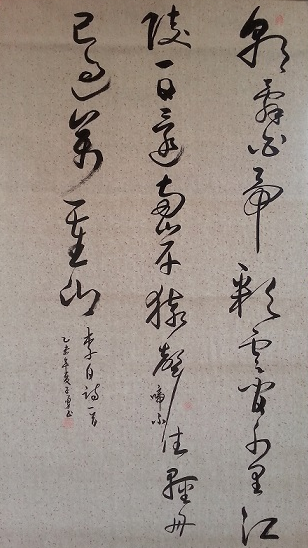 朝辭白帝彩雲間千里江
陵一日還兩岸猿聲啼不住輕舟
已過萬重山
李白詩一首
乙未年夏